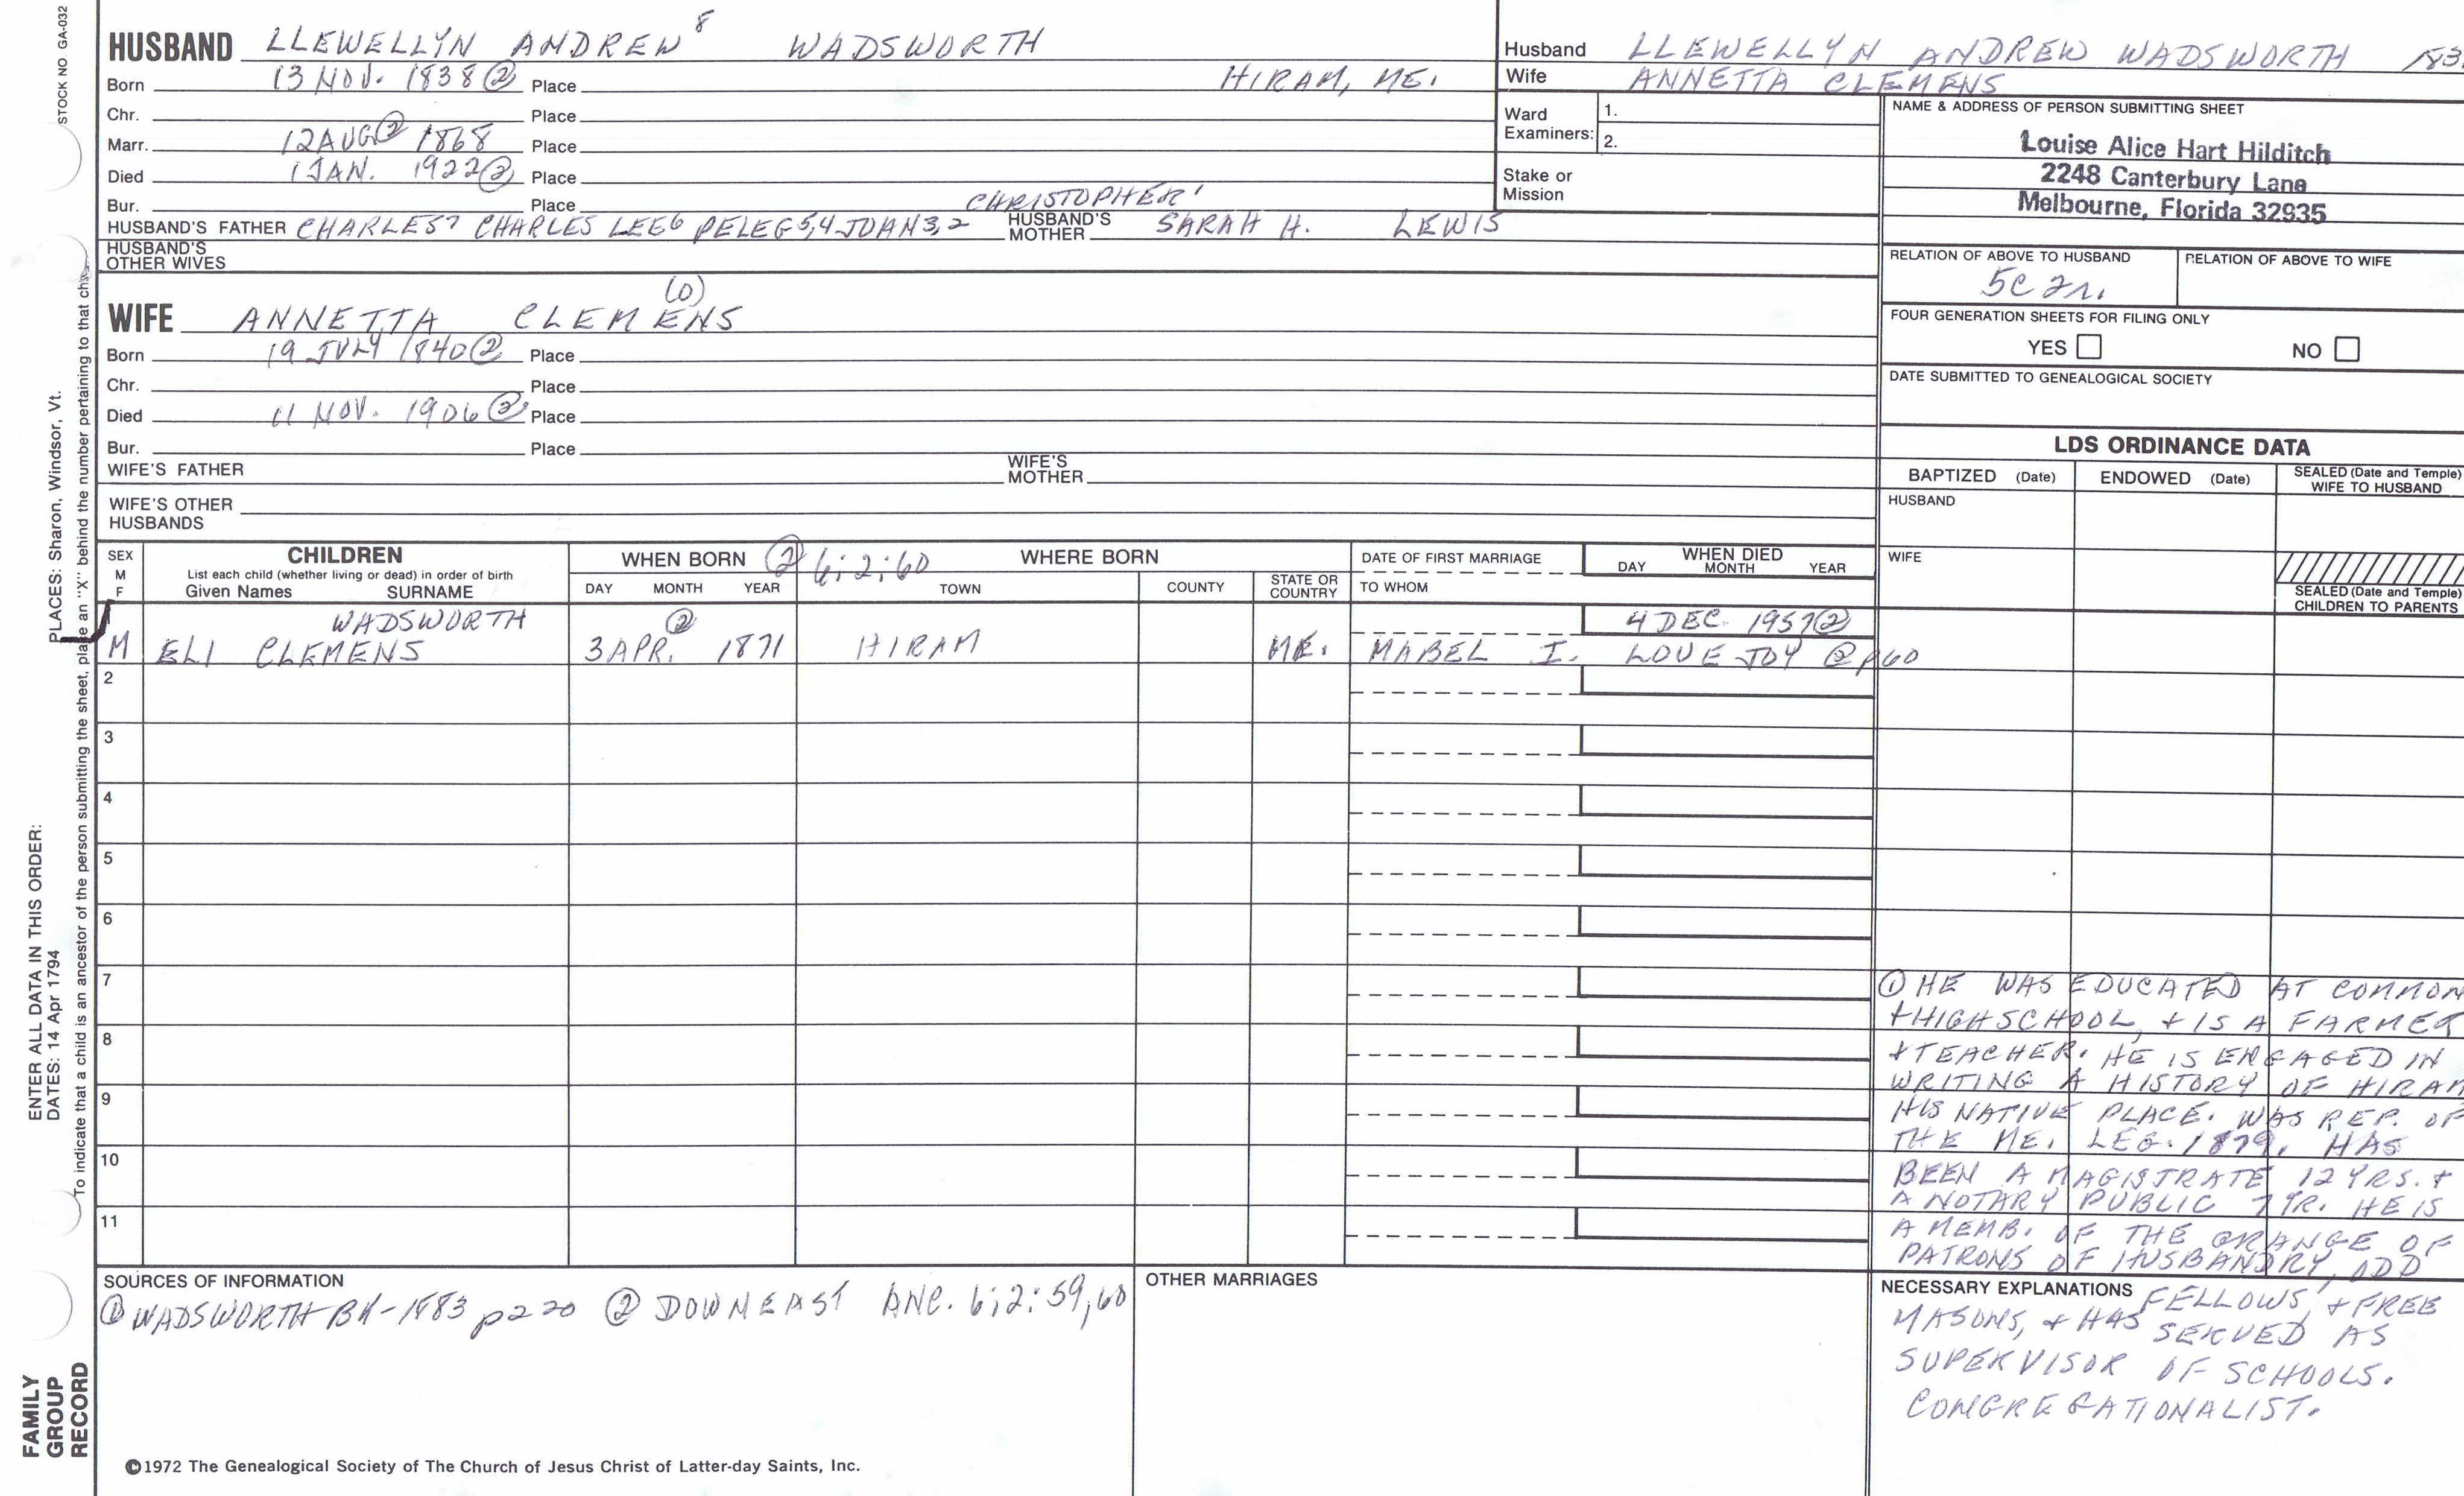 STOCK NO GA-032
HUSBAND LLEWELLYN ANDREW 8 WADSWORTH
Born 13 NOV. 1838 ② Place HIRAM, ME.
Chr. Place
Marr. 12 AUG ② 1868 Place
Died 1 JAN. 1922 ② Place
Bur. Place CHRISTOPHER 1
HUSBAND'S FATHER CHARLES 7 CHARLES LEE 6 PELEG 5,4 JOHN 3,2 HUSBAND'S MOTHER SARAH H. LEWIS
HUSBAND'S OTHER WIVES
(O)
WIFE ANNETTA CLEMENS
Born 19 JULY 1840 ② Place
Chr. Place
Died 11 NOV. 1906 ② Place
Bur. Place
WIFE'S FATHER WIFE'S MOTHER
WIFE'S OTHER HUSBANDS
Husband LLEWELLYN ANDREW WADSWORTH 183
Wife ANNETTA CLEMENS
Ward Examiners: 1.
2.
Stake or Mission
NAME & ADDRESS OF PERSON SUBMITTING SHEET
Louise Alice Hart Hilditch
2248 Canterbury Lane
Melbourne, Florida 32935
RELATION OF ABOVE TO HUSBAND RELATION OF ABOVE TO WIFE
5C 2r.
FOUR GENERATION SHEETS FOR FILING ONLY
YES NO
DATE SUBMITTED TO GENEALOGICAL SOCIETY
LDS ORDINANCE DATA
BAPTIZED (Date) ENDOWED (Date) SEALED (Date and Temple) WIFE TO HUSBAND
HUSBAND
WIFE
SEALED (Date and Temple) CHILDREN TO PARENTS
SEX M F CHILDREN WHEN BORN ② 6:2:60 WHERE BORN DATE OF FIRST MARRIAGE WHEN DIED
List each child (whether living or dead) in order of birth
Given Names SURNAME DAY MONTH YEAR TOWN COUNTY STATE OR COUNTRY TO WHOM DAY MONTH YEAR
1 WADSWORTH ② 4 DEC. 1957 ②
M ELI CLEMENS 3 APR. 1871 HIRAM ME. MABEL I. LOVEJOY ② p60
2
3
4
5
6
7
8
9
10
11
① HE WAS EDUCATED AT COMMON
+ HIGH SCHOOL, + IS A FARMER
+ TEACHER. HE IS ENGAGED IN
WRITING A HISTORY OF HIRAM
HIS NATIVE PLACE. WAS REP. OF
THE ME. LEG. 1879. HAS
BEEN A MAGISTRATE 12 YRS. +
A NOTARY PUBLIC 7 YR. HE IS
A MEMB. OF THE GRANGE OF
PATRONS OF HUSBANDRY, ODD
NECESSARY EXPLANATIONS FELLOWS, + FREE
MASONS, + HAS SERVED AS
SUPERVISOR OF SCHOOLS.
CONGREGATIONALIST.
SOURCES OF INFORMATION
① WADSWORTH BK-1883 p220 ② DOWNEAST ANC. 6:2:59,60
OTHER MARRIAGES
©1972 The Genealogical Society of The Church of Jesus Christ of Latter-day Saints, Inc.
FAMILY
GROUP
RECORD
ENTER ALL DATA IN THIS ORDER:
DATES: 14 Apr 1794
PLACES: Sharon, Windsor, Vt.
To indicate that a child is an ancestor of the person submitting the sheet, place an "X" behind the number pertaining to that